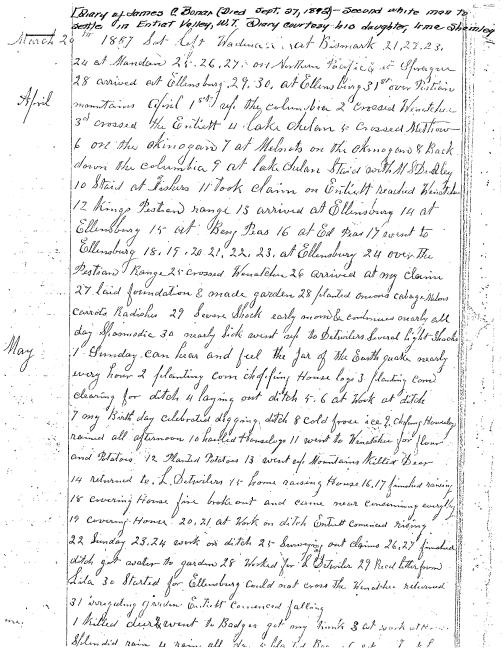 Diary of James C. Bonar (Died Sept. 27, 1892) - Second white man to
settle in Entiat Valley, W.T. Diary courtesy his daughter, Irme Shamley
March 20th 1887 Sat left Wadena at Bismark 21, 22, 23,
24 at Mandan 25-26, 27, on Northern Pacific at Sprague
28 arrived at Ellensburg 29, 30, at Ellensburg 31st over
April
mountains April 1st up the columbia 2 crossed Wenatchee
3rd crossed the Entiett 4 lake chelan 5 crossed Methow
6 on the okinogan 7 at on the okinogan 8 Back
down the columbia 9 at lake chelan Staid with
10 Staid at 11 took claim on Entiett reached
12 Kings range 13 arrived at Ellensburg 14 at
Ellensburg 15 at Bros 16 at Ed 17 went to
Ellensburg 18, 19, 20, 21, 22, 23, at Ellensburg 24 over the
Range 25 crossed Wenatchee 26 arrived at my claim
27 laid foundation & made garden 28 planted onions cabage
carrots Radishes 29 Severe Shock early morn & continues nearly all
day 30 nearly Sick went up to Detwilers Several light Shocks
May
1 Sunday, can hear and feel the Jar of the Earth quake nearly
every hour 2 planting corn chopping House logs 3 planting corn
clearing for ditch 4 laying out ditch 5-6 at Work at ditch
7 my Birth day celebrated digging ditch 8 cold froze ice 9 choping Houselogs
rained all afternoon 10 hauled Houselogs 11 went to Wenatchee for flour
and Potatoes 12 Planted Potatoes 13 went up Mountains Killed Deer
14 returned to L Detwilers 15 home raising House 16, 17 finished raising
18 covering House fire broke out and came near consuming everything
19 covering House 20, 21 at Work on ditch Entiett comenced rising
22 Sunday 23, 24 work on ditch 25 Surveying out claims 26, 27 finished
ditch got water to garden 28 Worked for L Detwiler 29 Recd letter from
Lida 30 Started for Ellensburg Could not cross the Wenatchee returned
31 irregating garden Entiett comenced falling
1 Killed deer & went to got my trunk 3 at work at
Splendid rain